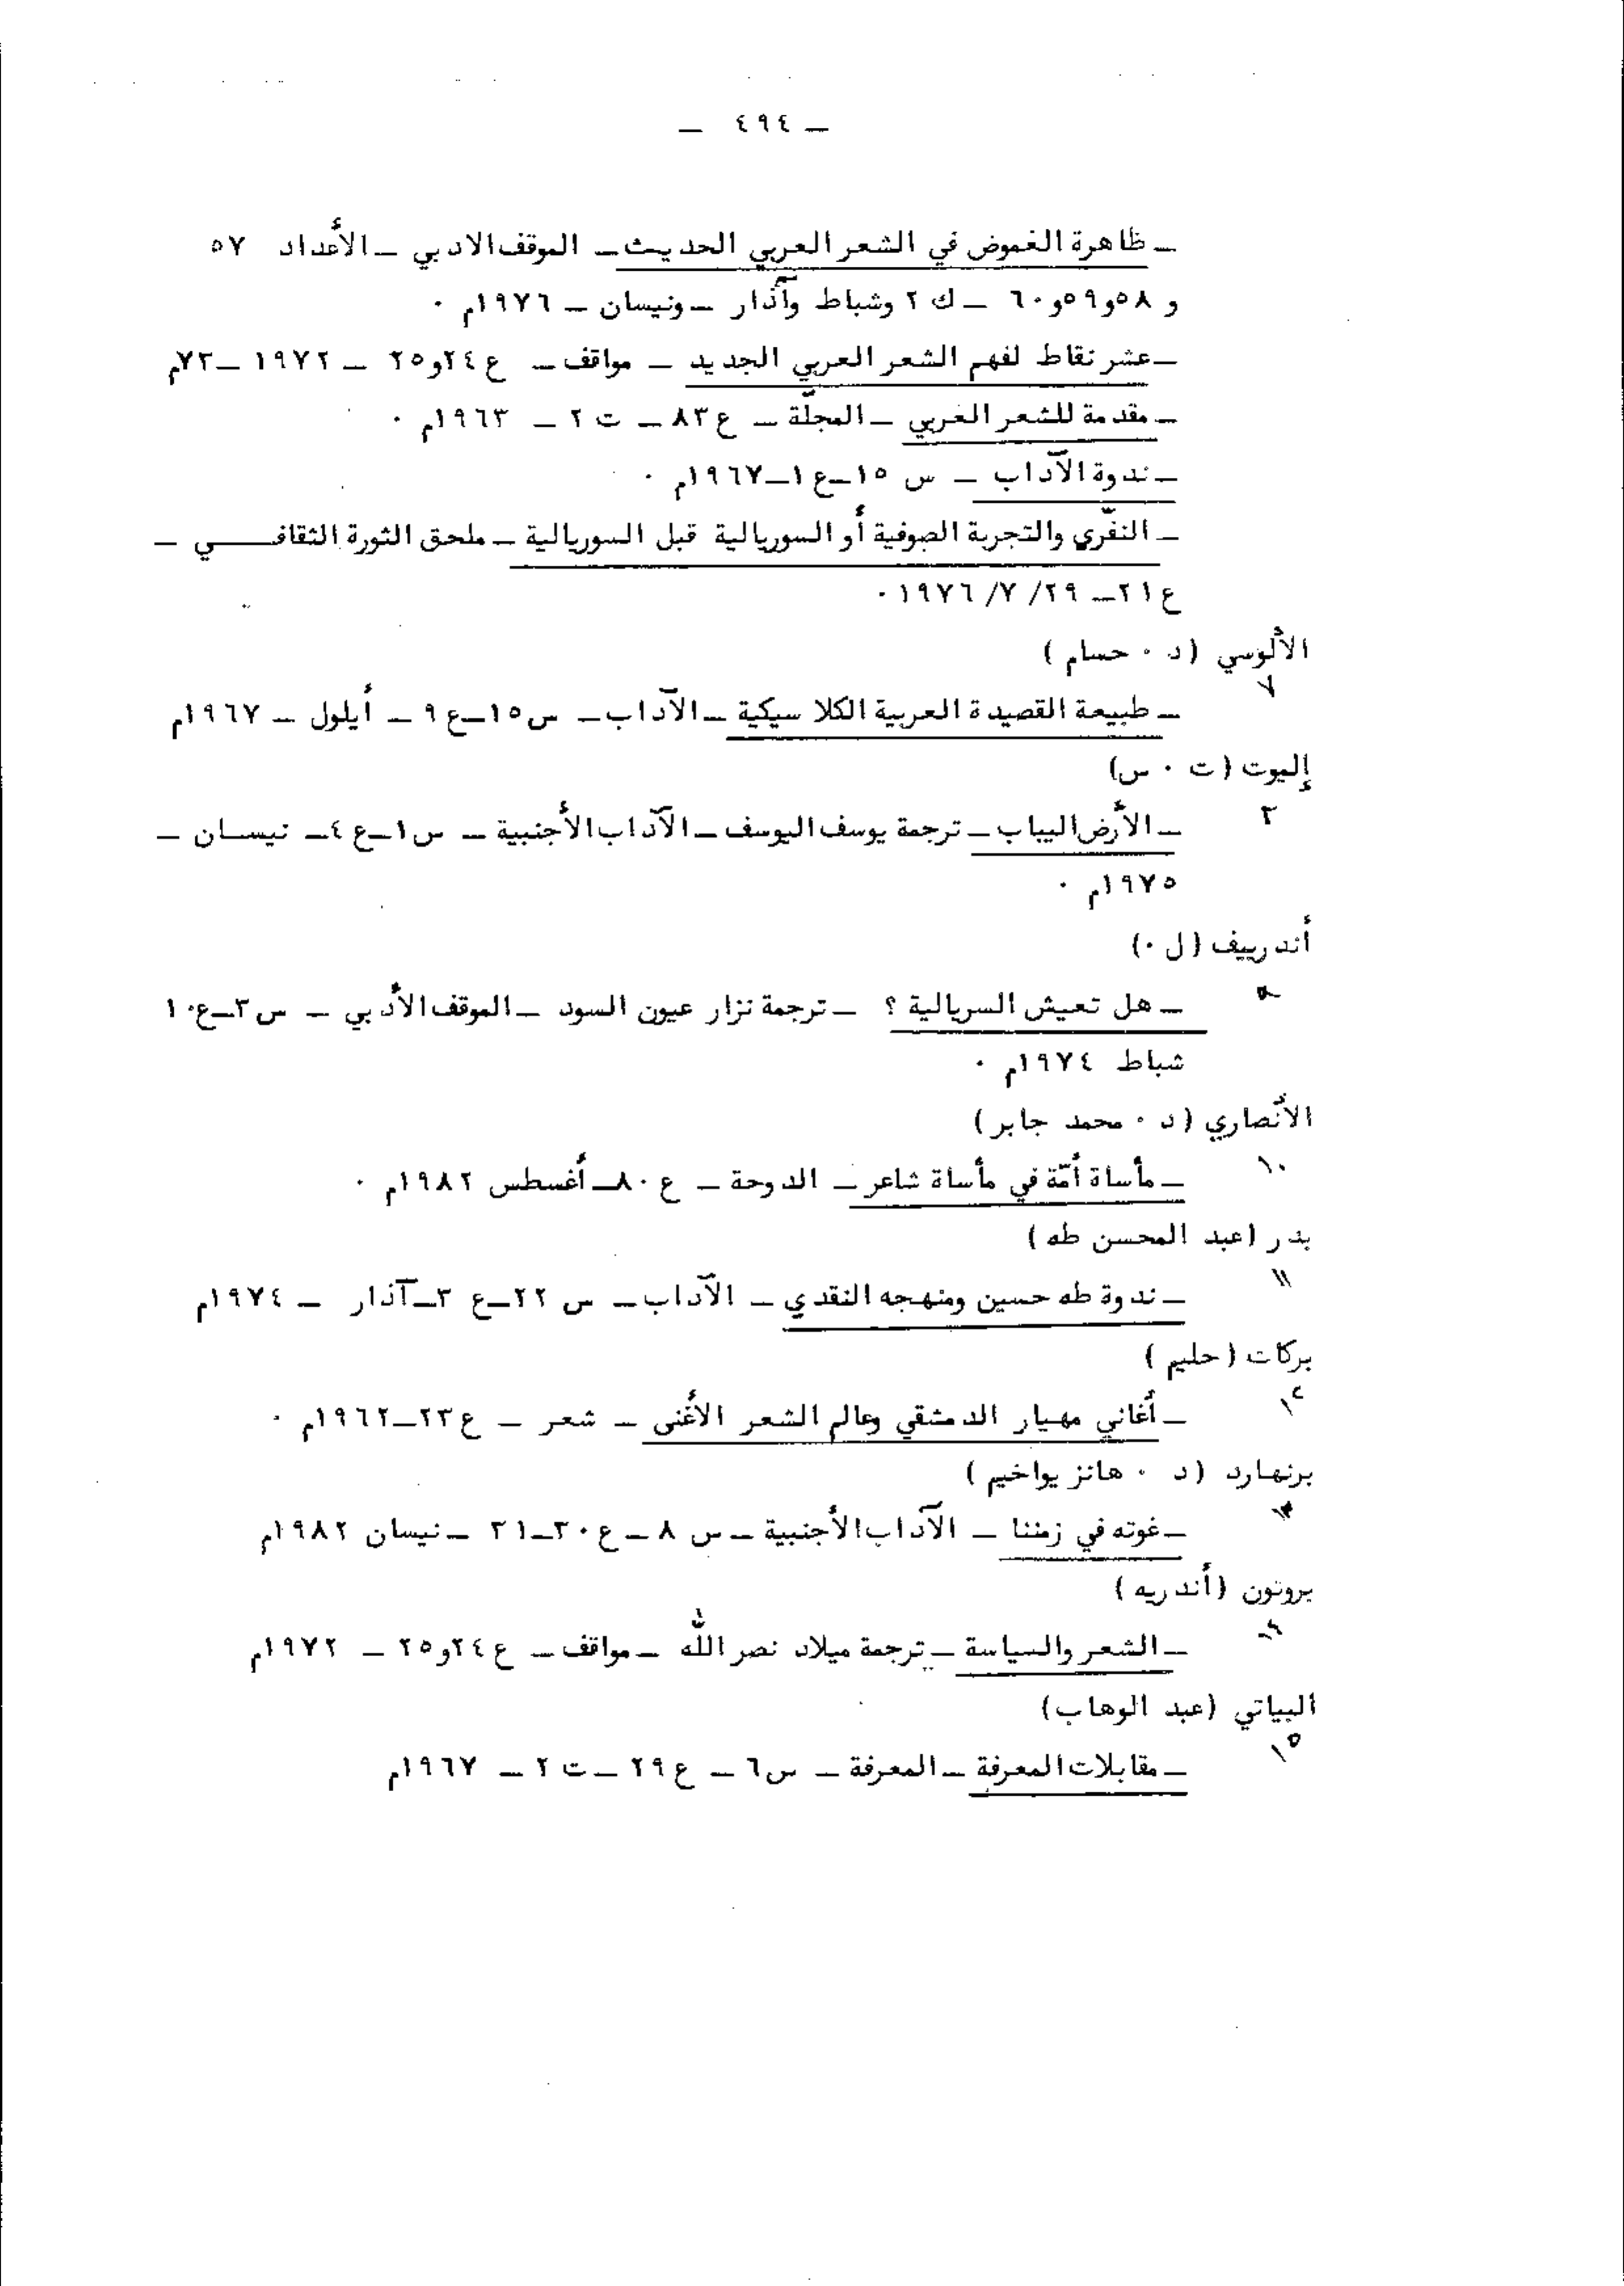 — ٤٩٤ —
— ظاهرة الغموض في الشعر العربي الحديث — الموقف الادبي — الأعداد ٥٧
و ٥٨و٥٩و٦٠ — ك ٢ وشباط وآذار — ونيسان — ١٩٧٦م ٠
— عشر نقاط لفهم الشعر العربي الجديد — مواقف — ع ٢٤و٢٥ — ١٩٧٢ — ٧٣م
— مقدمة للشعر العربي — المجلّة — ع ٨٣ — ت ٢ — ١٩٦٣م ٠
— ندوة الآداب — س ١٥—ع ١—١٩٦٧م ٠
— النفّري والتجربة الصوفية أو السوريالية قبل السوريالية — ملحق الثورة الثقافـــــي —
ع ٢١— ٢٩/ ٧/ ١٩٧٦ ٠
الألوسي (د ٠ حسام )
٧
— طبيعة القصيدة العربية الكلاسيكية — الآداب — س ١٥—ع ٩ — أيلول — ١٩٦٧م
إليوت ( ت ٠ س)
— الأرض اليباب — ترجمة يوسف اليوسف — الآداب الأجنبية — س ١—ع ٤— نيســان —
١٩٧٥م ٠
أندرييف ( ل ٠)
— هل تعيش السريالية ؟ — ترجمة نزار عيون السود — الموقف الأدبي — س ٣—ع١٠
شباط ١٩٧٤م ٠
الأنصاري ( د ٠ محمد جابر )
١٠
— مأساة أمّة في مأساة شاعر — الدوحة — ع ٨٠— أغسطس ١٩٨٢م ٠
بدر (عبد المحسن طه )
١١
— ندوة طه حسين ومنهجه النقدي — الآداب — س ٢٢—ع ٣—آذار — ١٩٧٤م
بركات ( حليم )
١٢
— أغاني مهيار الدمشقي وعالم الشعر الأغنى — شعر — ع ٢٣—١٩٦٢م ٠
برنهارد (د ٠ هانز يواخيم )
— غوته في زمننا — الآداب الأجنبية — س ٨ — ع ٣٠—٣١ — نيسان ١٩٨٢م
بروتون (أندريه )
— الشعر والسياسة — ترجمة ميلاد نصر الله — مواقف — ع ٢٤و٢٥ — ١٩٧٢م
البياتي (عبد الوهاب)
١٥
— مقابلات المعرفة — المعرفة — س ٦ — ع ٢٩ — ت ٢ — ١٩٦٧م